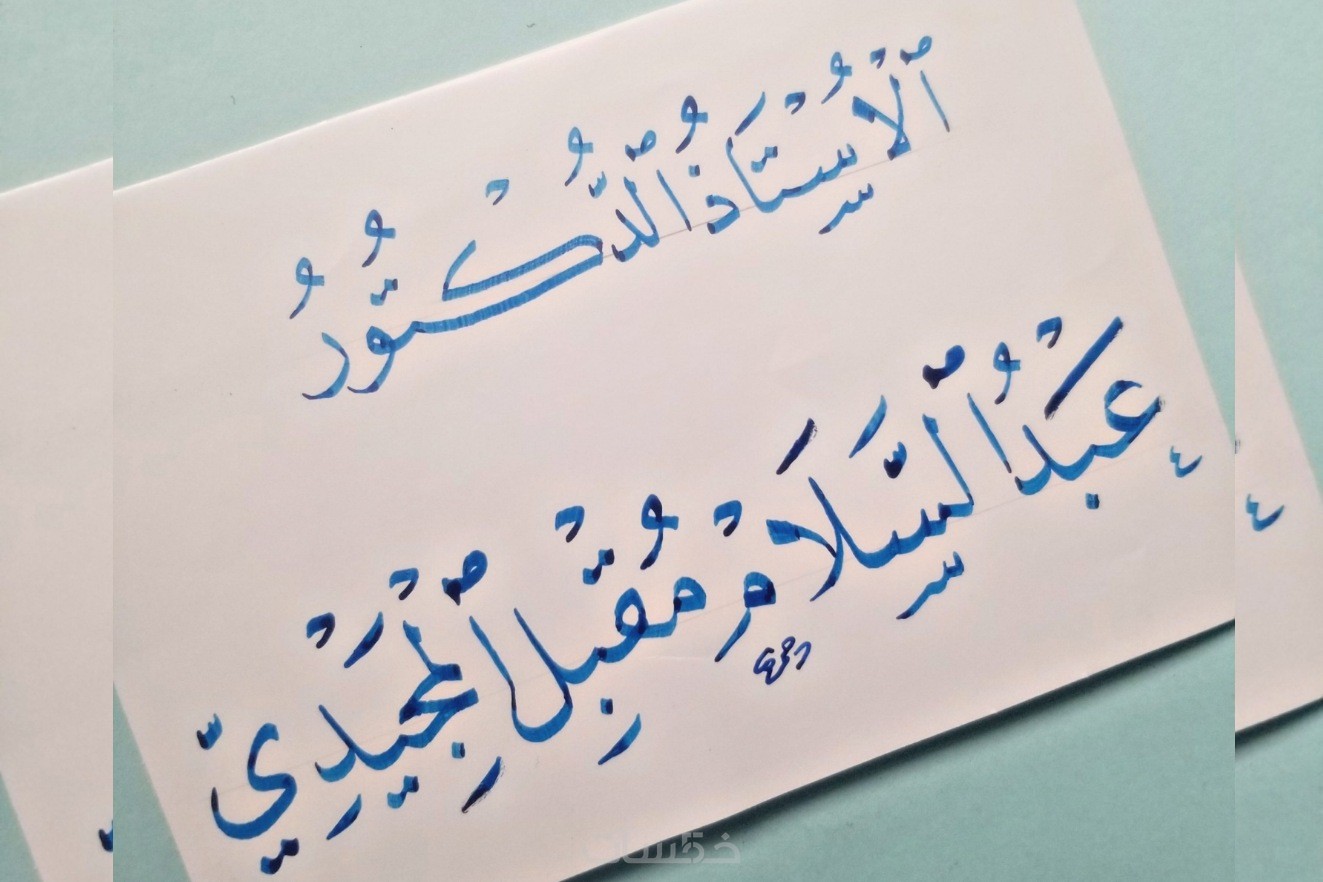 ٱلْأُسْتَاذُ ٱلدُّكْتُورُ
عَبْدُ ٱلسَّلَامْ مُقْبِلْ ٱلْمَجِيْدِيّ
خمسات